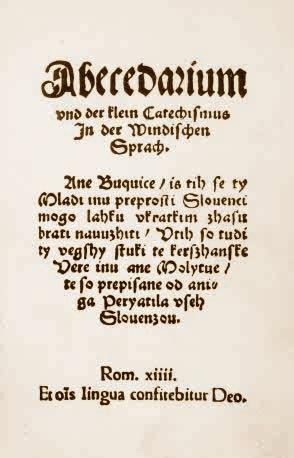 Abecedarium
vnd der klein Catechismus
In der Windischen
Sprach.
Ane Buquice / is tih se ty
Mladi inu preprosti Slouenci
mogo lahku vkratkim zhasu
brati nauuzhiti / Vtih so tudi
ty vegshy stuki te kerszhanske
Vere inu ane Molytue /
te so prepisane od aniga
ga Peryatila vseh
Slouenzou.
Rom. xiiii.
Et oīs lingua confitebitur Deo.